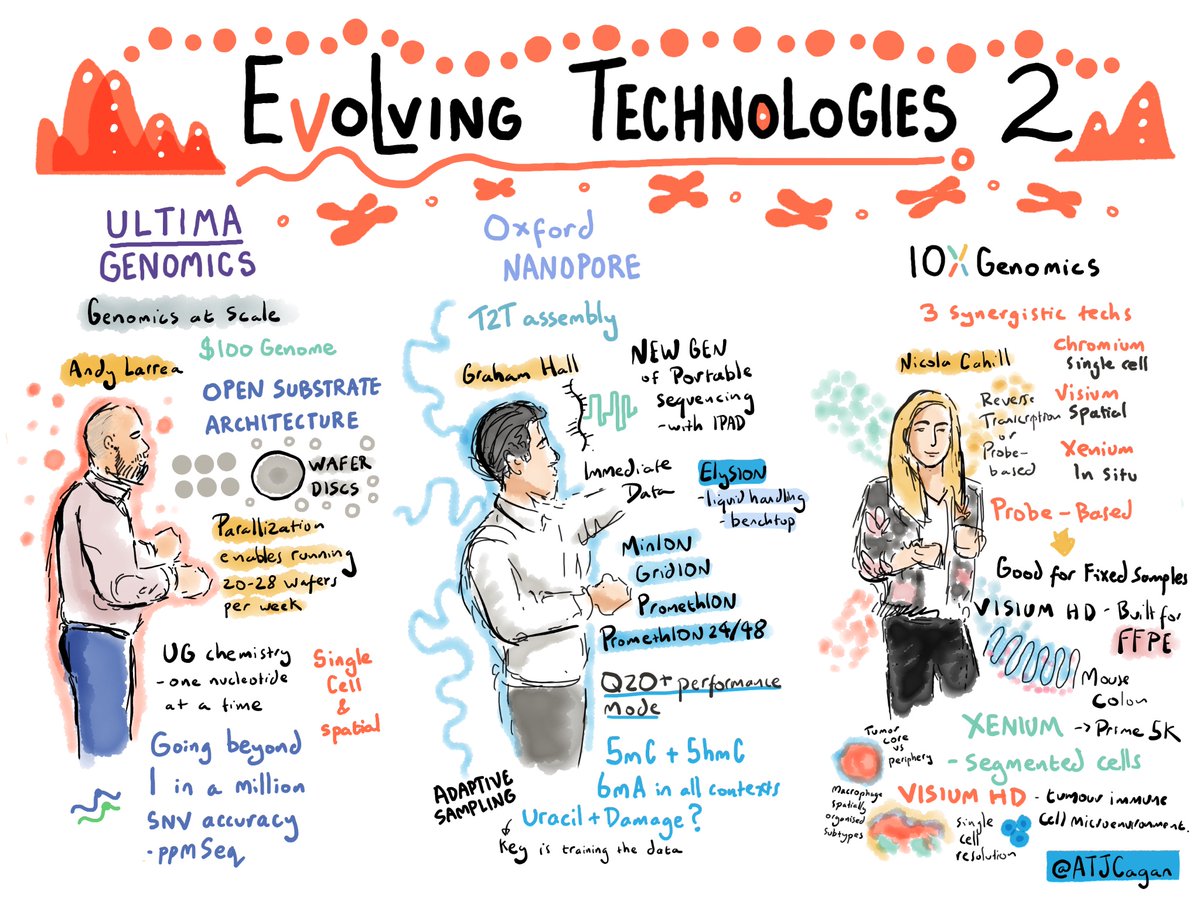 EVOLVING TECHNOLOGIES 2
ULTIMA
GENOMICS
Genomics at Scale
$100 Genome
Andy Larrea
OPEN SUBSTRATE
ARCHITECTURE
WAFER
DISCS
Parallization
enables running
20-28 wafers
per week
UG chemistry
- one nucleotide
at a time
Single
Cell
&
spatial
Going beyond
1 in a million
SNV accuracy
- ppmSeq
Oxford
NANOPORE
T2T assembly
Graham Hall
NEW GEN
of Portable
Sequencing
- with IPAD
Immediate
Data
ElysION
- liquid handling
- benchtop
MinION
GridION
PromethION
PromethION 24/48
Q20+ performance
mode
5mC + 5hmC
6mA in all contexts
ADAPTIVE
SAMPLING
Uracil + Damage?
Key is training the data
10X Genomics
3 Synergistic techs
Nicola Cahill
Chromium
Single cell
Visium
Spatial
Xenium
In Situ
Reverse
Transcription
or
Probe-
based
Probe-Based
Good for Fixed Samples
VISIUM HD - Built for
FFPE
Mouse
Colon
XENIUM -> Prime 5K
- Segmented cells
Tumor
core
vs
periphery
VISIUM HD - tumour immune
cell microenvironment.
Macrophage
spatially
organised
subtypes
single
cell
resolution
@ATJCagan